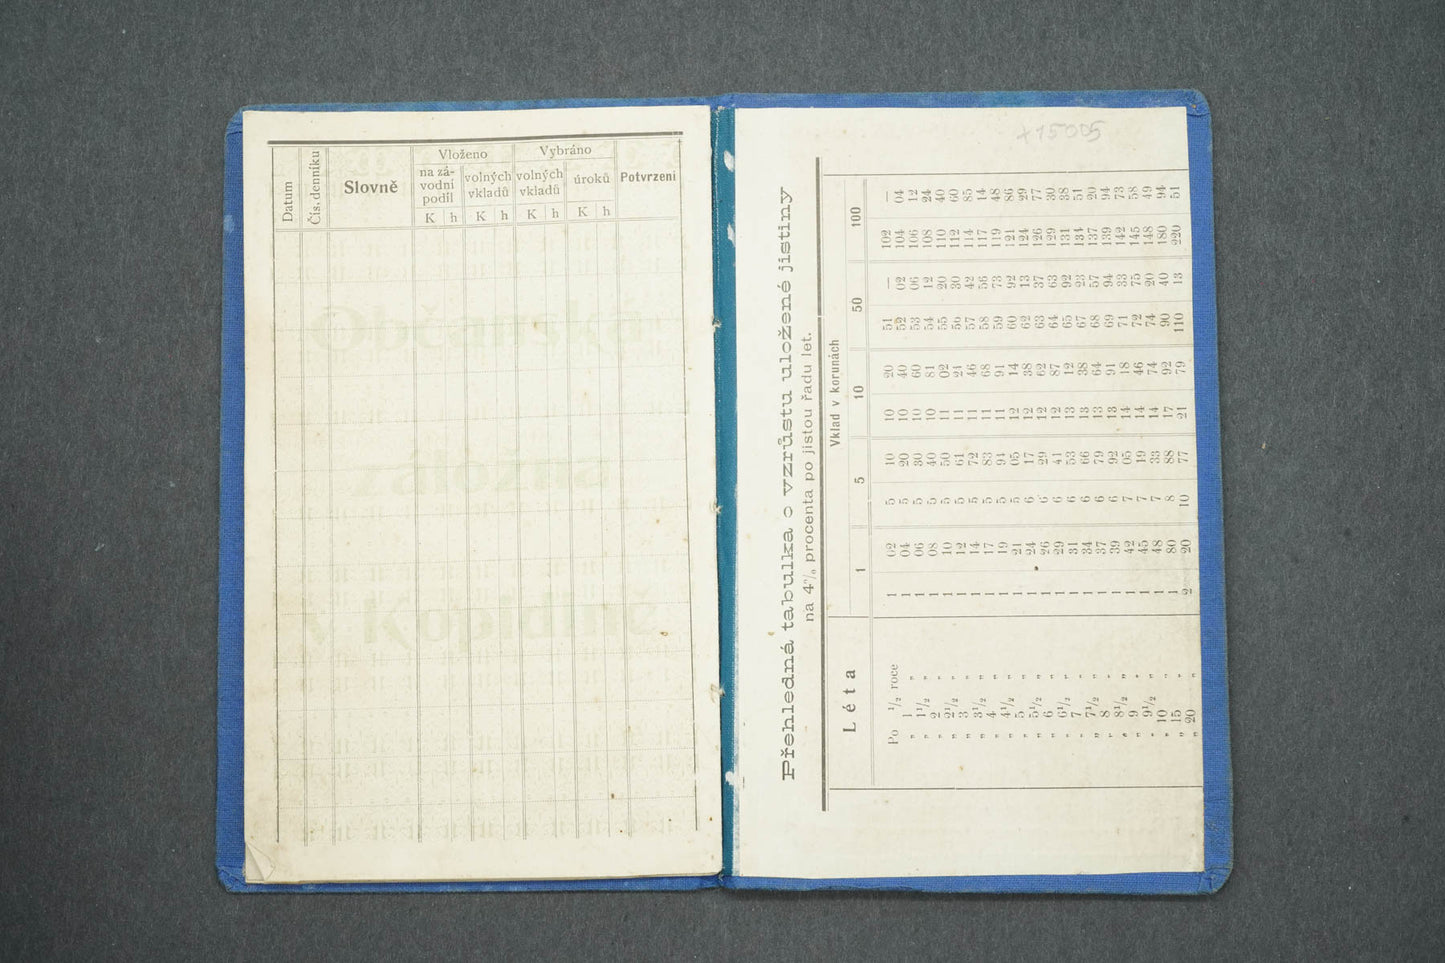 Datum
Čís. denníku
Slovně
Vloženo
Vybráno
na zá-
vodní
podíl
volných
vkladů
volných
vkladů
úroků
Potvrzení
K h K h K h K h
+15005
Přehledná tabulka o vzrůstu uložené jistiny
na 4% procenta po jistou řadu let.
Léta
Vklad v korunách
1 5 10 50 100
Po 1/2 roce 1 02 5 10 10 20 51 — 102 —
„ 1 „ 1 04 5 20 10 40 52 02 104 04
„ 1 1/2 „ 1 06 5 30 10 60 53 06 106 12
„ 2 „ 1 08 5 40 10 81 54 12 108 24
„ 2 1/2 „ 1 10 5 50 11 02 55 20 110 40
„ 3 „ 1 12 5 61 11 24 56 30 112 60
„ 3 1/2 „ 1 14 5 72 11 46 57 42 114 85
„ 4 „ 1 17 5 83 11 68 58 56 117 14
„ 4 1/2 „ 1 19 5 94 11 91 59 73 119 48
„ 5 „ 1 21 5 05 12 14 60 92 121 86
„ 5 1/2 „ 1 24 6 17 12 38 62 13 124 29
„ 6 „ 1 26 6 29 12 62 63 37 126 77
„ 6 1/2 „ 1 29 6 41 12 87 64 63 129 30
„ 7 „ 1 31 6 53 13 12 65 92 131 38
„ 7 1/2 „ 1 34 6 66 13 38 67 23 134 51
„ 8 „ 1 37 6 79 13 64 68 57 137 20
„ 8 1/2 „ 1 39 6 92 13 91 69 94 139 94
„ 9 „ 1 42 7 05 14 18 71 33 142 73
„ 9 1/2 „ 1 45 7 19 14 46 72 75 145 58
„ 10 „ 1 48 7 33 14 74 74 20 148 49
„ 15 „ 1 80 8 88 17 92 90 40 180 94
„ 20 „ 2 20 10 77 21 79 110 13 220 51